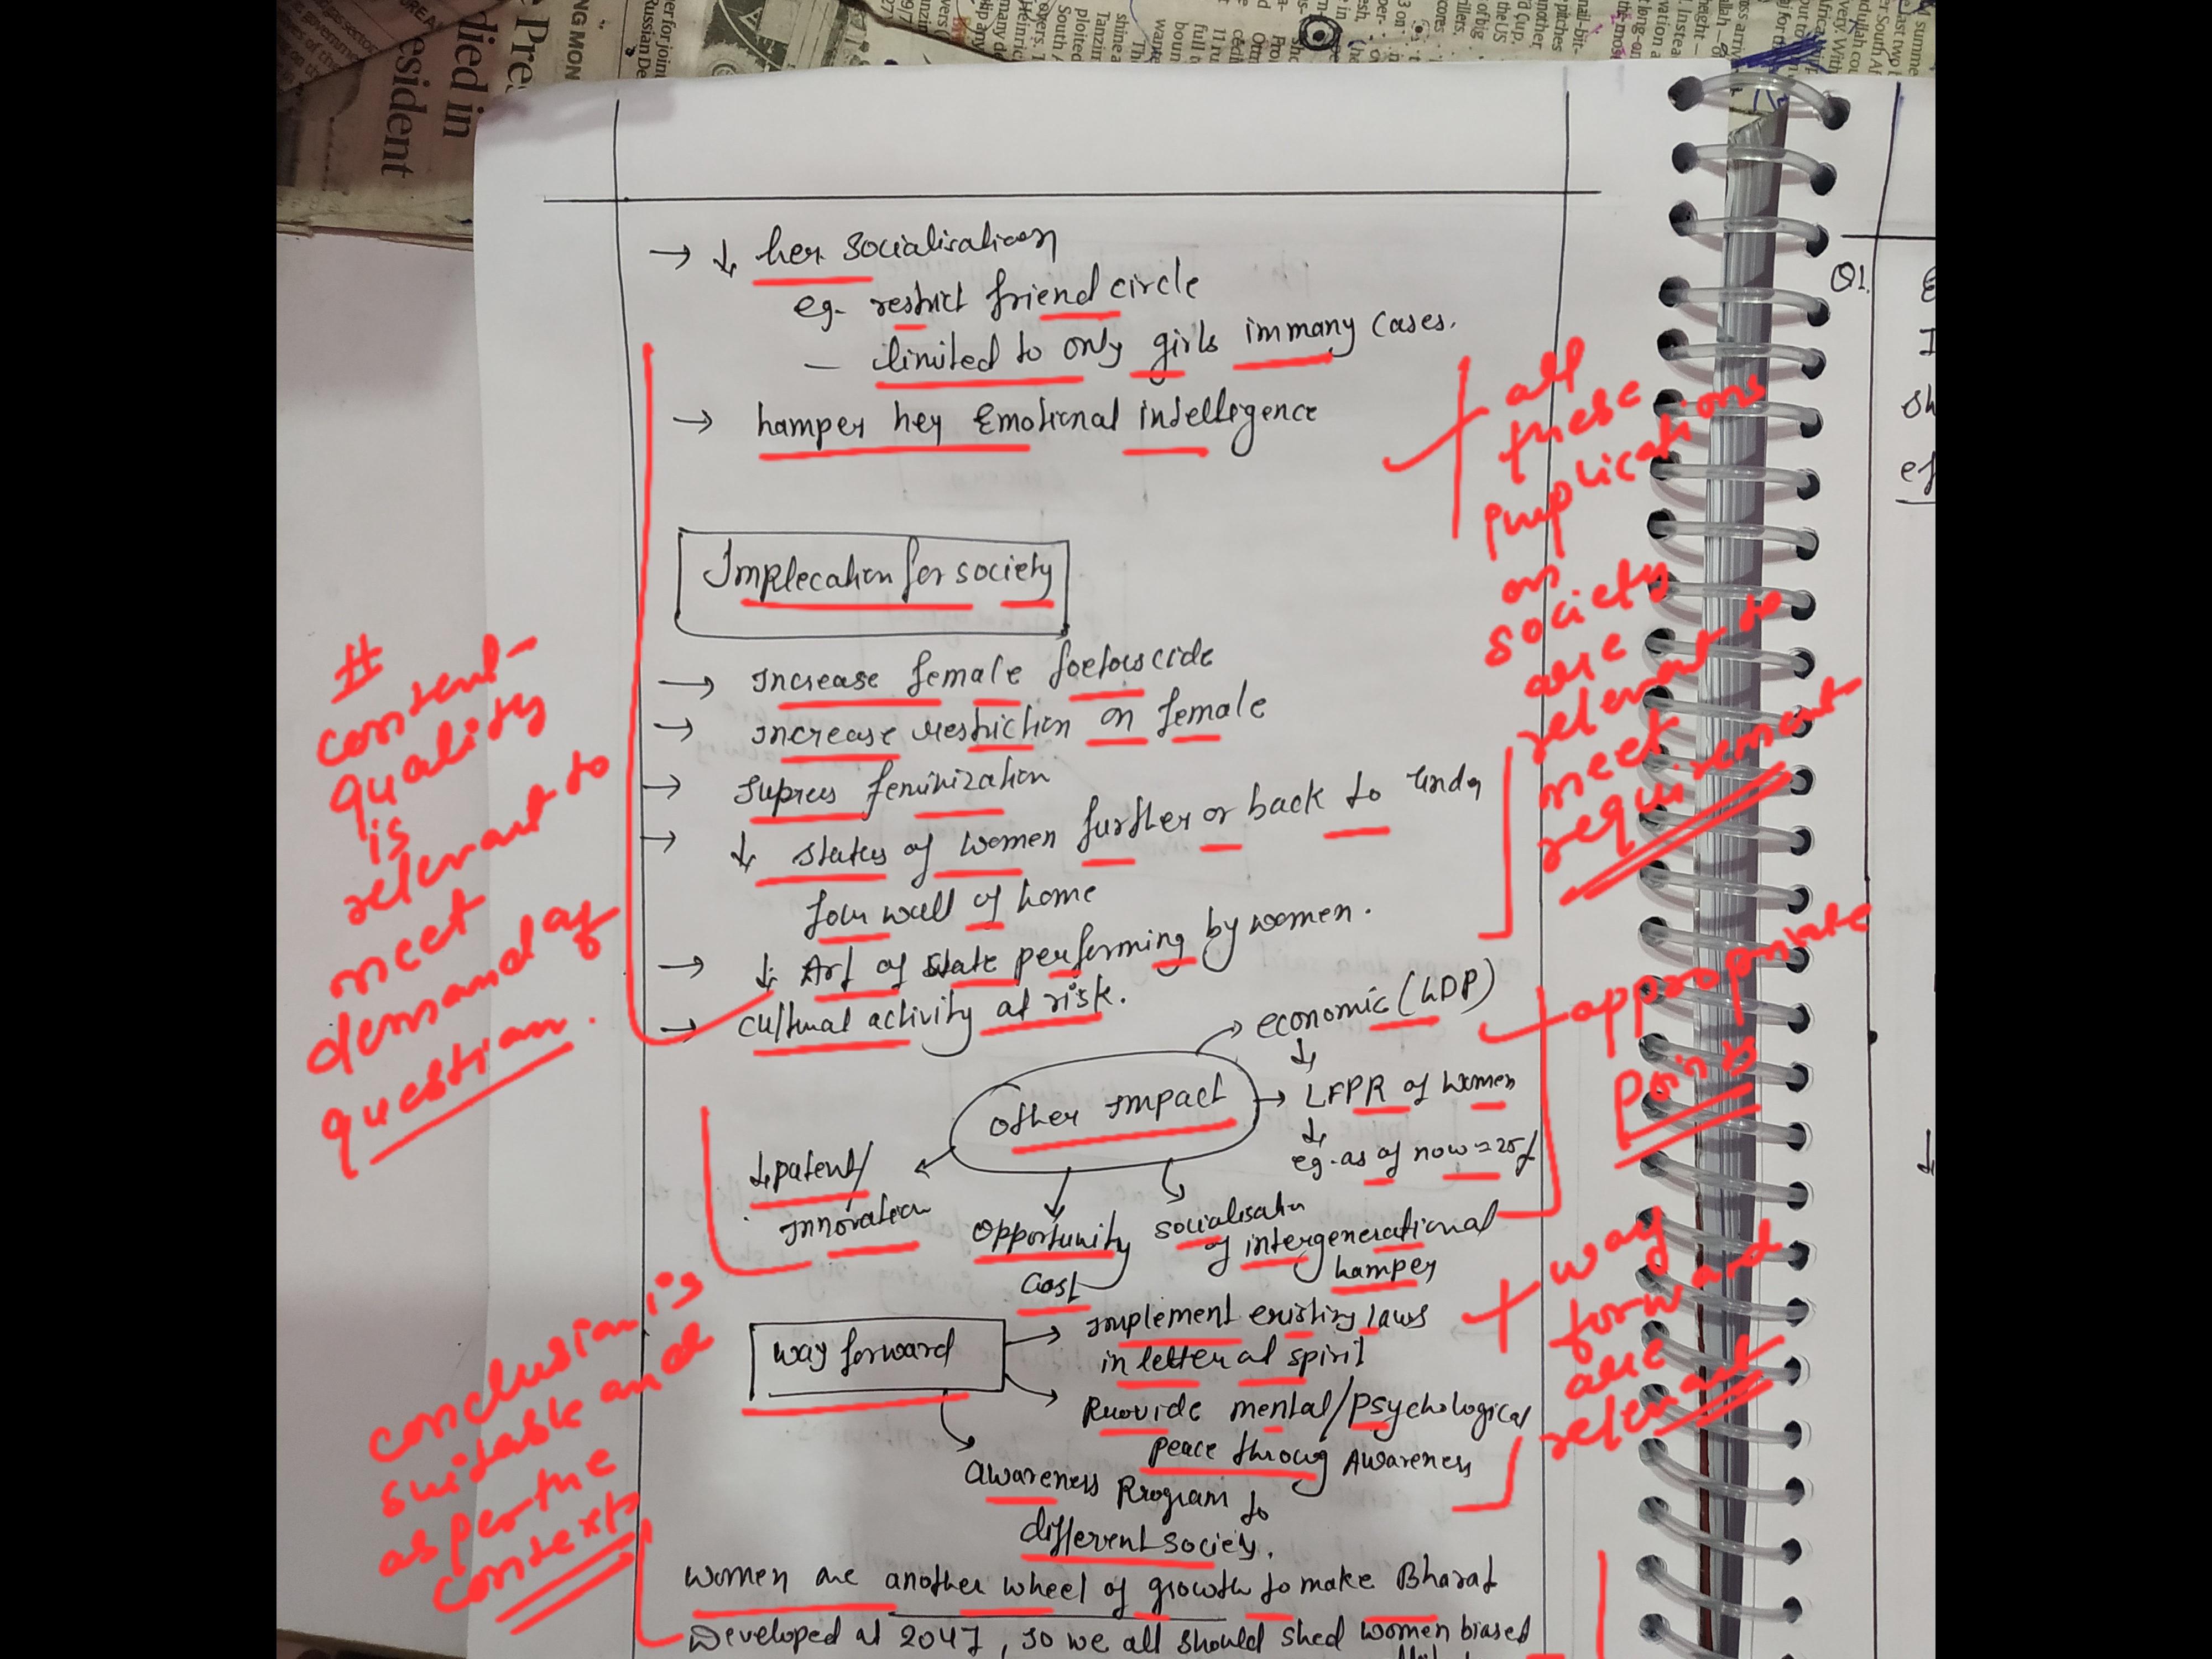 → ↓ her socialisation
eg. restrict friend circle
— limited to only girls in many cases.
→ hamper her Emotional intellegence
Implecation for society
→ Increase female foetuscide
→ Increase restriction on female
→ Supress feminization
→ ↓ status of women further or back to
four wall of home
→ ↓ Art of State performing by women.
→ Cultural activity at risk.
Other Impact
→ economic (GDP)
↓
→ LFPR of women
↓
eg. as of now = 25%
↓ patent/
Innovation
Opportunity
Cost
socialisatn
of intergenerational
hamper
Way forward
→ Implement existing laws
in letter ad spirit
→ Provide mental/psychological
peace throug Awareness
→ Awareness Program to
different society.
Women are another wheel of growth to make Bharat
Developed at 2047, so we all should shed women biased
all
these
implications
on
society
are
relevant to
meet
requirement
appropriate
points
way
forward
are
relevant
#
content
quality
is
relevant to
meet
demand of
question.
conclusion is
suitable and
as per the
contexts
Q1.
died in
esident
Pres
NG MON
Russian De